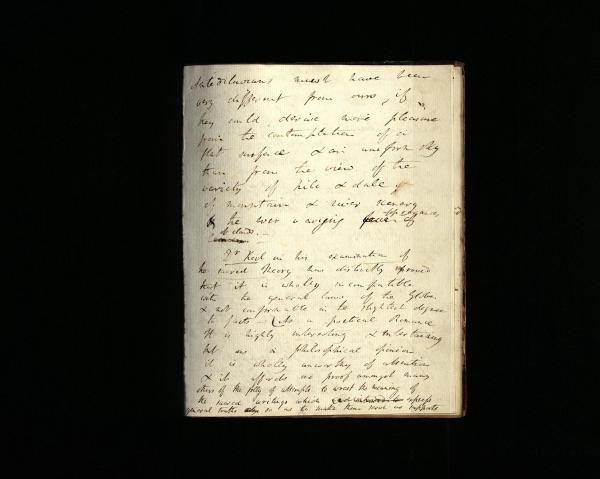 antediluvians must have been
very different from ours, if
they could derive more pleasure
from the contemplation of a
flat surface & an uniform sky
than from the view of the
variety of hill & dale
of mountain & river scenery
& the ever varying of
the clouds.
Dr Keil in his examination of
the sacred theory has distinctly proved
that it is wholly incompatible
with the general laws of the Globe
& not conformable in the slightest degree
to facts. As a poetical Romance
it is highly interesting & entertaining
but as a philosophical opinion
it is wholly unworthy of attention
& it affords one proof amongst many
others of the folly of attempts to wrest the meaning of
the sacred writings which express
general truths so as to make them